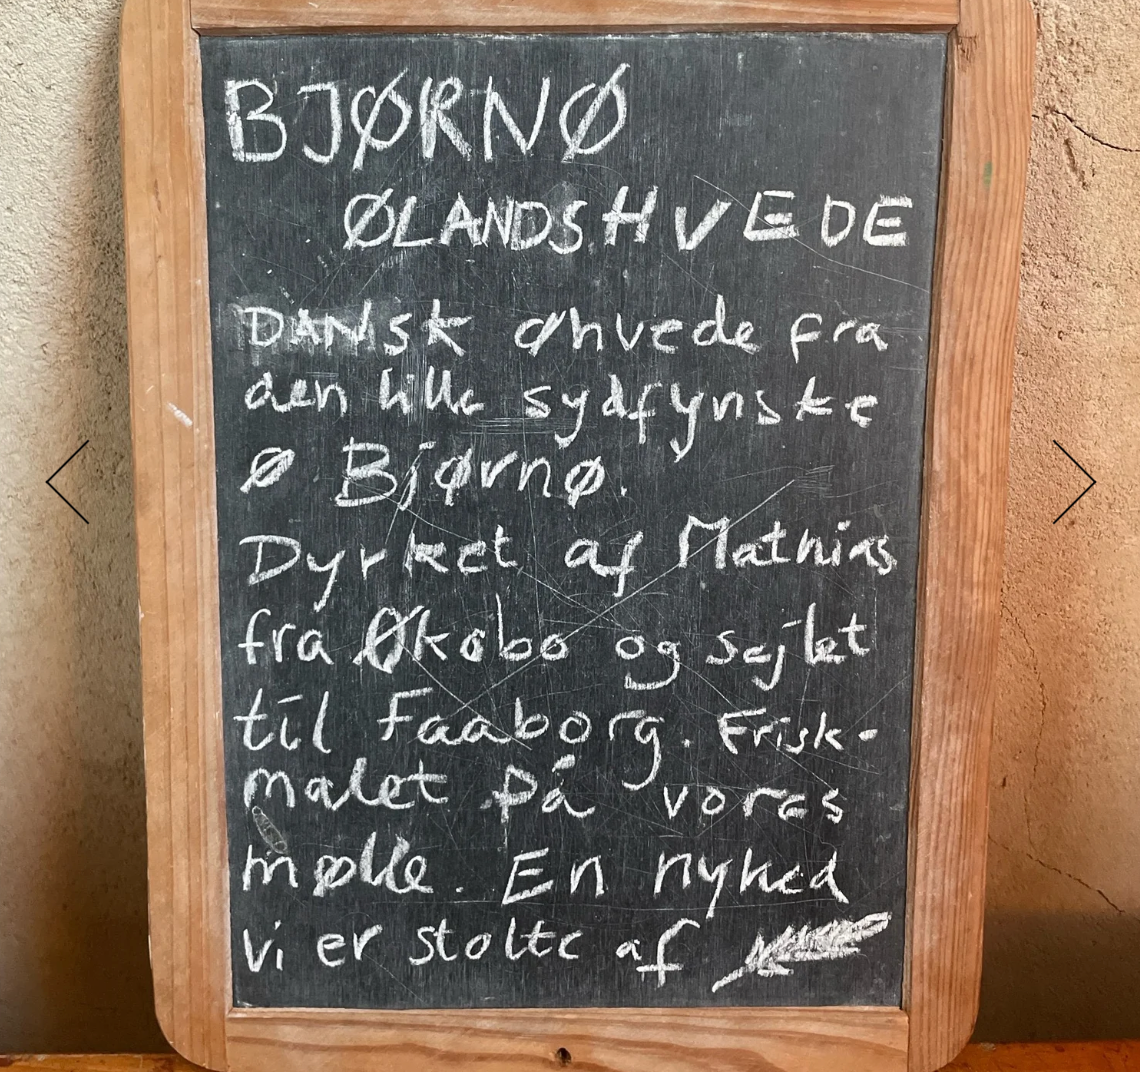 BJØRNØ
ØLANDSHVEDE
DANSK Øhvede fra
den lille sydfynske
ø Bjørnø.
Dyrket af Mathias
fra Økobo og sejlet
til Faaborg. Frisk-
malet på vores
mølle. En nyhed
vi er stolte af